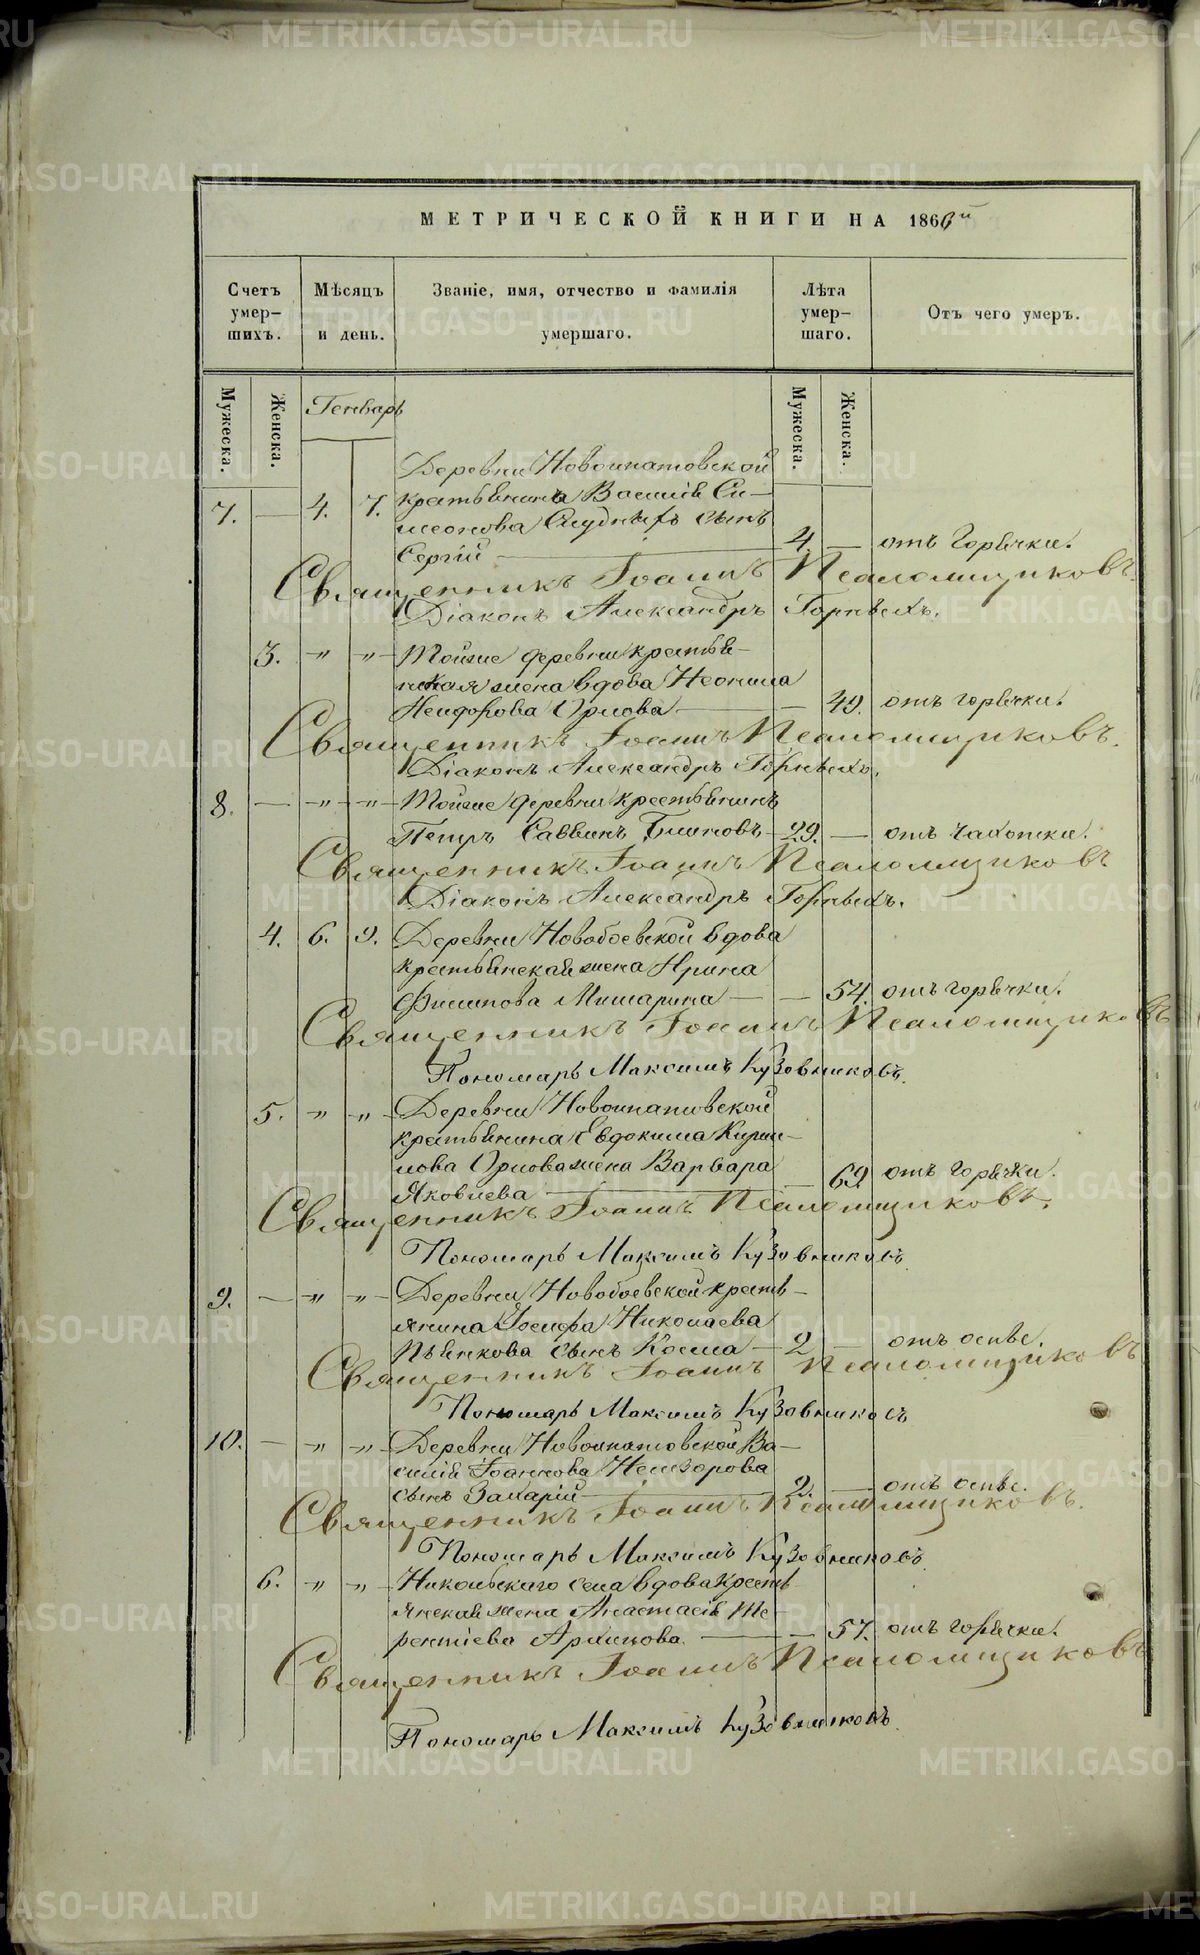 МЕТРИЧЕСКОЙ КНИГИ НА 1866й
Счетъ умер-шихъ.
Мѣсяцъ и день.
Званіе, имя, отчество и фамилія умершаго.
Лѣта умер-шаго.
Отъ чего умеръ.
Мужеска. Женска. Генварь Мужеска. Женска.
Деревни Новоипатовской
7. — 4. 7. крестьянина Василія Си-
меонова сынъ
Сергій — 4. — отъ Горячки.
Священникъ Іоаннъ Псаломщиковъ.
Діаконъ Александръ Горныхъ.
3. „ „ Тойже деревни крестья-
нская жена вдова Неонила
Орлова — 49. отъ горячки.
Священникъ Іоаннъ Псаломщиковъ.
Діаконъ Александръ Горныхъ.
8. — „ „ Тойже деревни крестьянинъ
Петръ Саввинъ Блиновъ 29. — отъ чахотки.
Священникъ Іоаннъ Псаломщиковъ
Діаконъ Александръ Горныхъ.
4. 6. 9. Деревни Новобоевской вдова
крестьянская жена Ирина
Филипова Мишарина — — 54. отъ горячки.
Священникъ Іоаннъ Псаломщиковъ
Пономарь Максимъ Кузовниковъ.
5. „ „ Деревни Новоипатовской
крестьянина Евдокима Кирил-
лова Орлова жена Варвара
Яковлева — 69. отъ горячки.
Священникъ Іоаннъ Псаломщиковъ.
Пономарь Максимъ Кузовниковъ
9. — „ „ Деревни Новобоевской кресть-
янина Іосифа Николаева
Пьянкова сынъ Косма — 2 — отъ оспы.
Священникъ Іоаннъ Псаломщиковъ
Пономарь Максимъ Кузовниковъ
10. — „ „ Деревни Новоипатовской Ва-
силія Іоаннова
сынъ Захарій — 2. — отъ оспы.
Священникъ Іоаннъ Псаломщиковъ.
Пономарь Максимъ Кузовниковъ
6. „ „ Никольскаго села вдова кресть-
янская жена Анастасія Те-
рентіева Архипова. — 57. отъ горячки.
Священникъ Іоаннъ Псаломщиковъ
Пономарь Максимъ Кузовниковъ.
METRIKI.GASO-URAL.RU